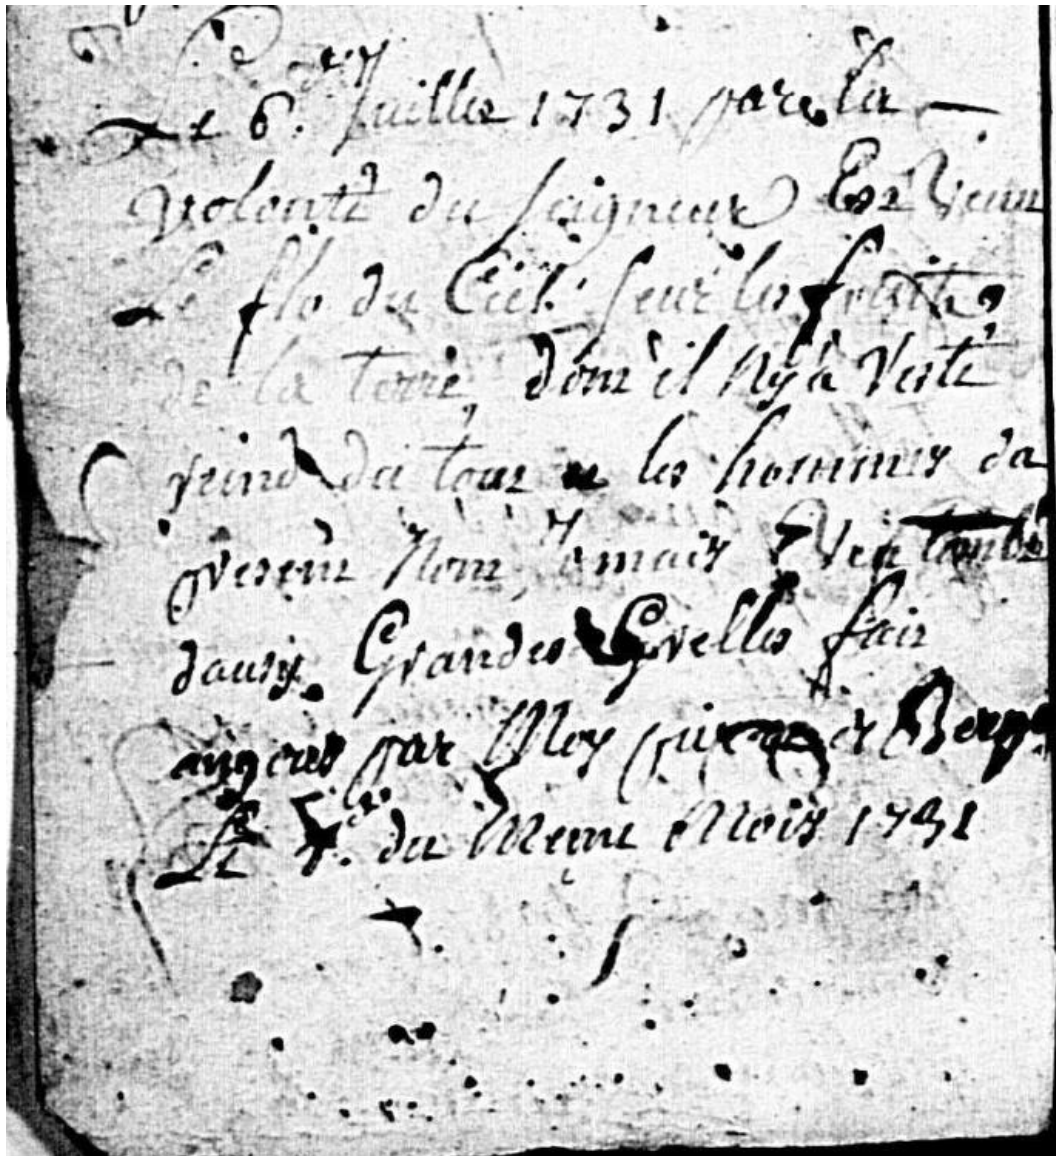 Le 6.e Juillet 1731 par la
volonté du seigneur Est Venu
Le flo du Ciel seur les fruits
de la terre, dont il Ny a resté
riend du tout les hommes da
present Nont Jamais Veu tombé
dausy Grandes Grelles fait
par Moy
Le 7.e du Meme Mois 1731